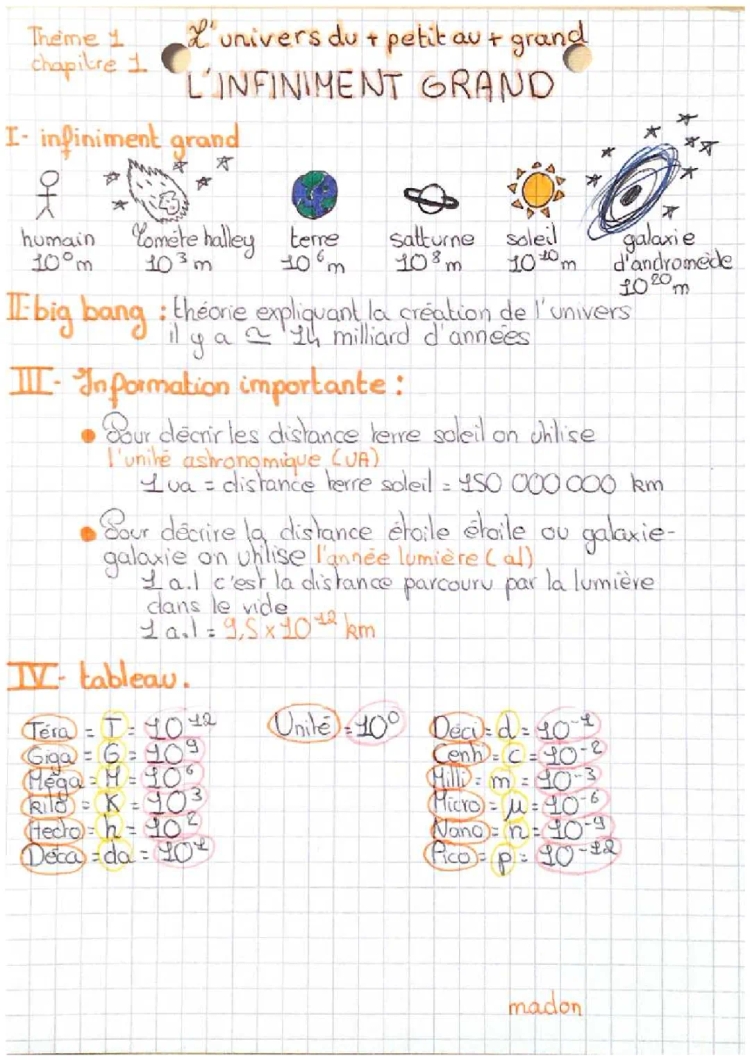 Thème 1
chapitre 1
L'univers du + petit au + grand
L'INFINIMENT GRAND
I- infiniment grand
humain
10⁰m
Comète halley
10³m
terre
10⁶m
satturne
10⁸m
soleil
10¹⁰m
galaxie
d'andromède
10²⁰m
II-big bang : théorie expliquant la création de l'univers
il y a ≃ 14 milliard d'années
III- Information importante :
• Pour décrir les distance terre soleil on uhilise
l'unité astronomique (UA)
1 ua = distance terre soleil = 150 000 000 km
• Pour décrire la distance étoile étoile ou galaxie-
galaxie on uhilise l'année lumière (al)
1 a.l c'est la distance parcouru par la lumière
dans le vide
1 a.l = 9,5 x 10¹² km
IV- tableau.
Téra = T = 10¹²
Giga = G = 10⁹
Méga = M = 10⁶
kilo = K = 10³
Hecto = h = 10²
Déca = da = 10¹
Unité = 10⁰
Déci = d = 10⁻¹
Centi = c = 10⁻²
Milli = m = 10⁻³
Micro = μ = 10⁻⁶
Nano = n = 10⁻⁹
Pico = p = 10⁻¹²
madon